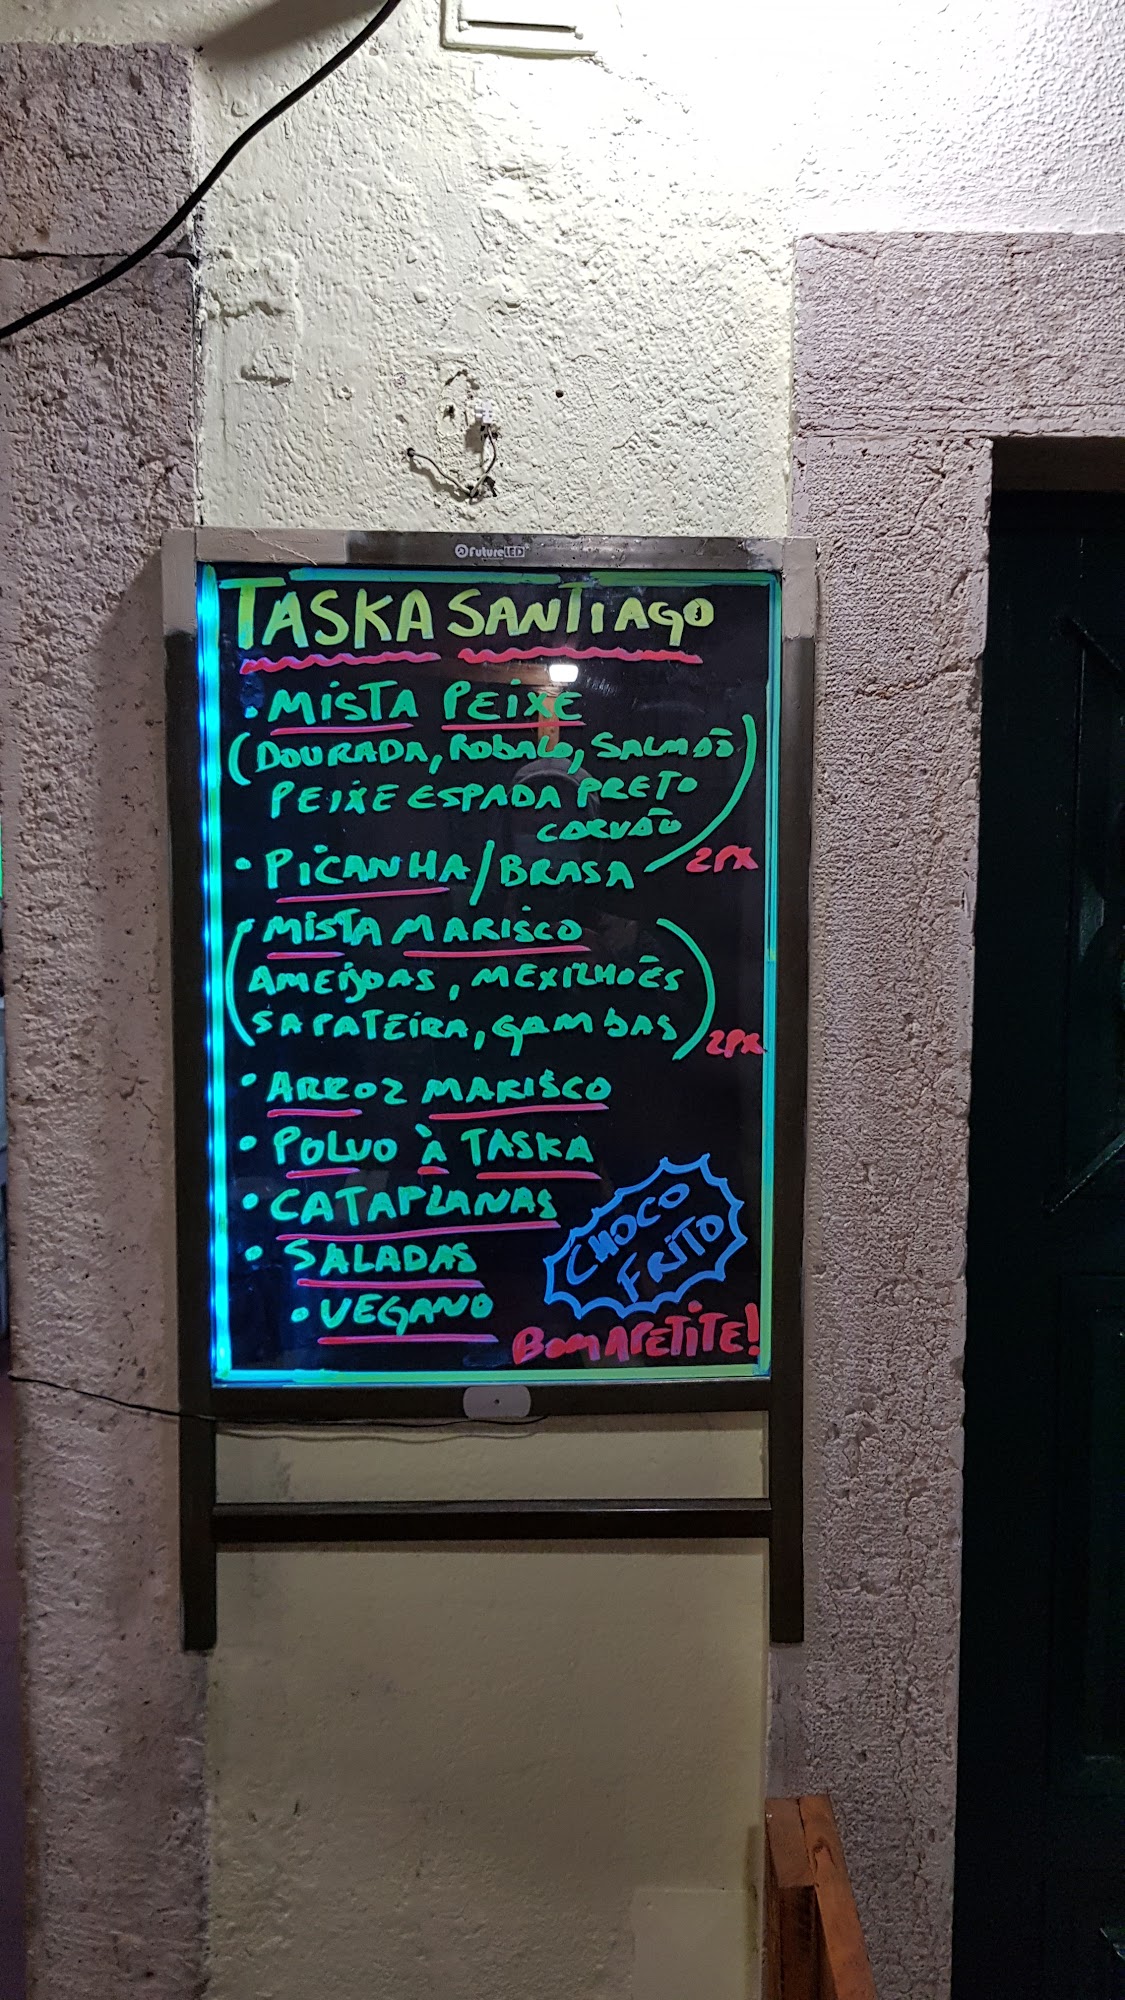 FutureLED
TASKA SANTIAGO
• MISTA PEIXE
(DOURADA, ROBALO, SALMÃO
PEIXE ESPADA PRETO
CARVÃO)
• PICANHA/BRASA 2PX
• MISTA MARISCO
(AMEIJOAS, MEXILHOÊS
SAPATEIRA, GAMBAS) 2PX
• ARROZ MARISCO
• POLVO À TASKA
• CATAPLANAS
• SALADAS
• VEGANO
CHOCO
FRITO
BOM APETITE!